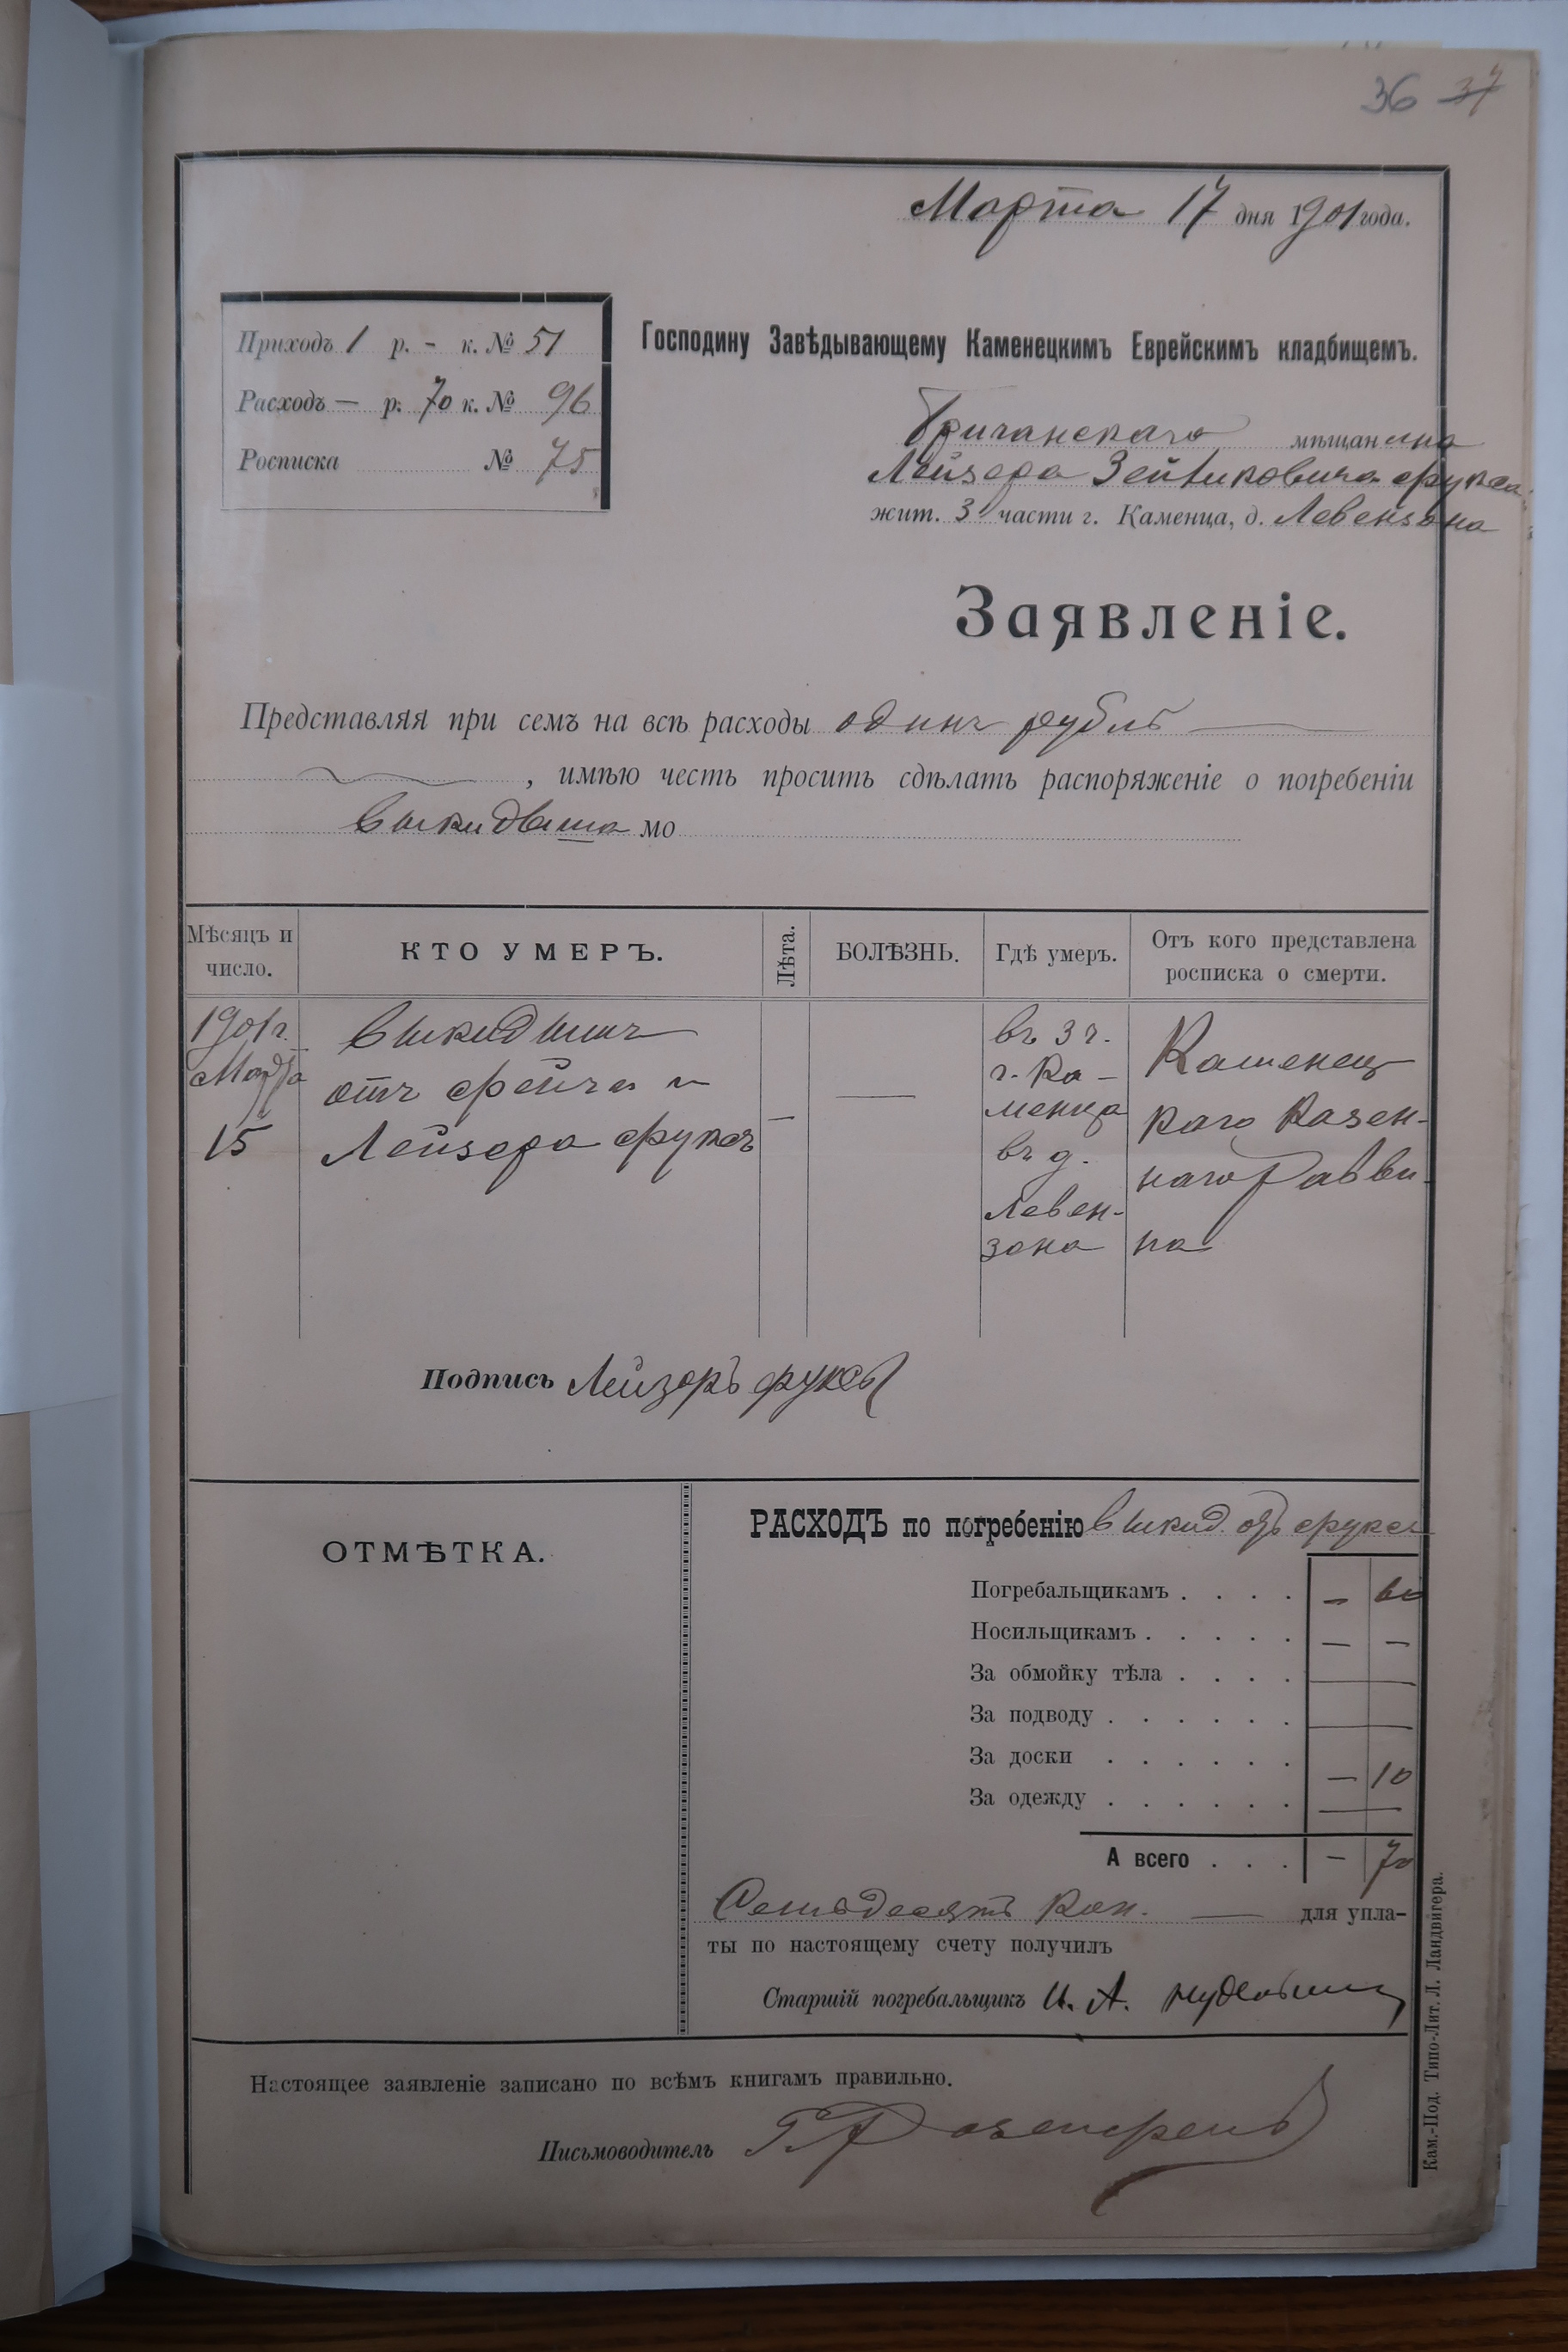 36 37
Марта 17 дня 1901 года.
Приходъ 1 р. - к. № 51
Расходъ — р. 70 к. № 96
Росписка № 75
Господину Завѣдывающему Каменецкимъ Еврейскимъ кладбищемъ.
Бричанскаго мѣщанина
Лейзера Зейликовича Фукса
жит. 3 части г. Каменца, д. Левензона
Заявленіе.
Представляя при семъ на всѣ расходы одинъ рубль —
, имѣю честь просить сдѣлать распоряженіе о погребеніи
выкидыша мо
Мѣсяцъ и число.
КТО УМЕРЪ.
Лѣта.
БОЛѢЗНЬ.
Гдѣ умеръ.
Отъ кого представлена росписка о смерти.
1901 г.
Марта
15
выкидышъ
отъ Фейги и
Лейзера Фуксъ
—
—
въ 3 ч.
г. Ка-
менца
въ д.
Левен-
зона
Каменец
каго Казен-
наго Равви-
на
Подпись Лейзоръ Фуксъ
ОТМѢТКА.
РАСХОДЪ по погребенію выкид. отъ Фуксъ
Погребальщикамъ . . . . — 60
Носильщикамъ . . . . . — —
За обмойку тѣла . . . . —
За подводу . . . . . . —
За доски . . . . . . — 10
За одежду . . . . . . —
А всего . . . — 70
Семьдесятъ коп. — для упла-
ты по настоящему счету получилъ
Старшій погребальщикъ И. А. Нудельманъ
Настоящее заявленіе записано по всѣмъ книгамъ правильно.
Письмоводитель
Кам.-Под. Типо-Лит. Л. Ландвигера.